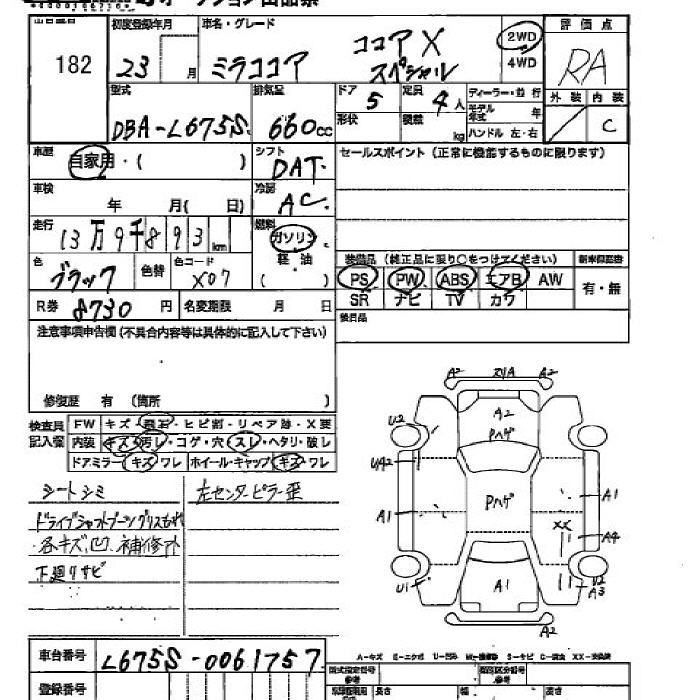 182
初度登録年月
23 月
車名・グレード
ミラココア
ココア X
スペシャル
2WD
4WD
評価点
RA
外装 内装
C
型式
DBA-L675S
排気量
660cc
ドア
5
形状
定員
4人
積載
kg
ディーラー・並行
モデル年式 年
ハンドル 左・右
車歴
自家用・( )
シフト
DAT
セールスポイント (正常に機能するものに限ります)
車検
年 月( 日)
冷房
AC
走行
13万9千893km
燃料
ガソリン
軽油
( )
色
ブラック
色替
色コード
X07
装備品 (純正品に限り○をつけてください)
PS PW ABS エアB AW
SR ナビ TV カワ
新車保証書
有・無
R券 8730円
名変期限 月 日
後日品
注意事項申告欄 (不具合内容等は具体的に記入して下さい)
修復歴 有 (箇所 )
検査員
記入欄
FW キズ・飛石・ヒビ割・リペア跡・X要
内装 キズ・汚レ・コゲ・穴・スレ・ヘタリ・破レ
ドアミラー キズ・ワレ ホイール・キャップ キズ・ワレ
シートシミ
左センターピラー歪
ドライブシャフトブーツグリスもれ
各キズ凹 補修跡
下廻りサビ
A2 A2
A2
Pハゲ
U2
UA2
Pハゲ
A1
A1
XX
A4
U1
A1
U2
A3
A2
車台番号
L675S-0061757
登録番号
A-キズ E-エクボ U-凹み W-補修跡 S-サビ C-腐食 XX-交換済
型式指定番号
参考
類別区分番号
参考
長さ 幅 高さ